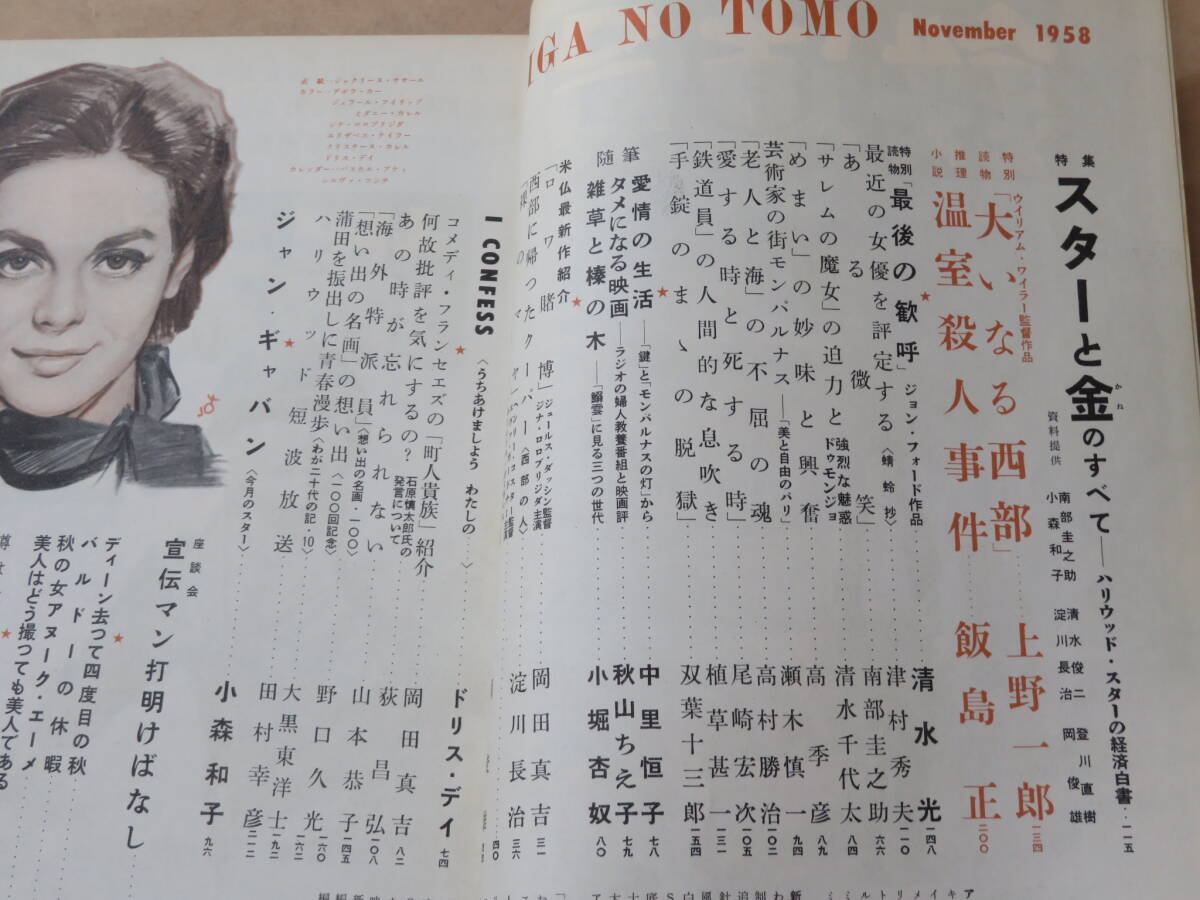 IGA NO TOMO November 1958
特集 スターと金のすべて——ハリウッド・スターの経済白書‥一一五
かね
資料提供 南部圭之助 清水俊二 登川直樹
小森和子 淀川長治 岡俊雄
特別読物 ウイリアム・ワイラー監督作品「大いなる西部」 上野一郎 一三四
推理小説 温室殺人事件 飯島正 二〇〇
★
特別読物「最後の歓呼」ジョン・フォード作品 清水光 一四八
最近の女優を評定する〈蜻蛉抄〉 津村秀夫 一一〇
「ある微笑」 南部圭之助 六六
「サレムの魔女」の迫力と強烈な魅惑ドゥモンジョ 清水千代太 八四
「めまい」の妙味と興奮 高季彦 八九
芸術家の街モンパルナス——「美と自由のパリ」 瀬木慎一 九四
「老人と海」の不屈の魂 高村勝治 一〇二
「愛する時と死する時」 尾崎宏次 一〇五
「鉄道員」の人間的な息吹き 植草甚一 一三一
「手錠のまゝの脱獄」 双葉十三郎 一五四
★
随筆
愛情の生活——「鍵」と「モンパルナスの灯」から 中里恒子 七八
タメになる映画——ラジオの婦人教養番組と映画評 秋山ちえ子 七九
雑草と榛の木——「鰯雲」に見る三つの世代 小堀杏奴 八〇
★
米仏最新作紹介
「ロワ賭博」ジュールス・ダッシン監督 ジナ・ロロブリジダ主演 岡田真吉 三一
西部に帰ったクーパー〈西部の人〉 淀川長治 三六
四〇
I CONFESS 〈うちあけましょう わたしの…〉 ドリス・デイ 七四
★
コメディ・フランセエズの「町人貴族」紹介 岡田真吉 八二
何故批評を気にするの? 石原慎太郎氏の発言について 荻昌弘 一〇八
あの時が忘れられない 山本恭子 一四五
「海外特派員」〈想い出の名画・一〇〇〉 野口久光 一六〇
「想い出の名画」の想い出〈一〇〇回記念〉 大黒東洋士 一六二
蒲田を振出しに青春漫歩〈わが二十代の記・10〉 田村幸彦 一九二
ハリウッド短波放送 二一二
★
ジャン・ギャバン〈今月のスター〉 小森和子 九六
座談会
宣伝マン打明けばなし
★
ディーン去って四度目の秋
バルドーの休暇
秋の女アヌーク・エーメ
美人はどう撮っても美人である
★
表紙・ジャクリーヌ・ササール
カラー・デボラ・カー
ジェラール・フイリップ
ミレーヌ・
ジナ・ロロブリジダ
エリザベス・テイラー
クリスチーヌ・カレル
ドリス・デイ
カレンダー・パスカル・プティ